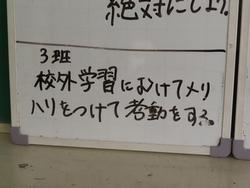 絶対にしよう。
3班
校外学習におけてメリ
ハリをつけて考動をする